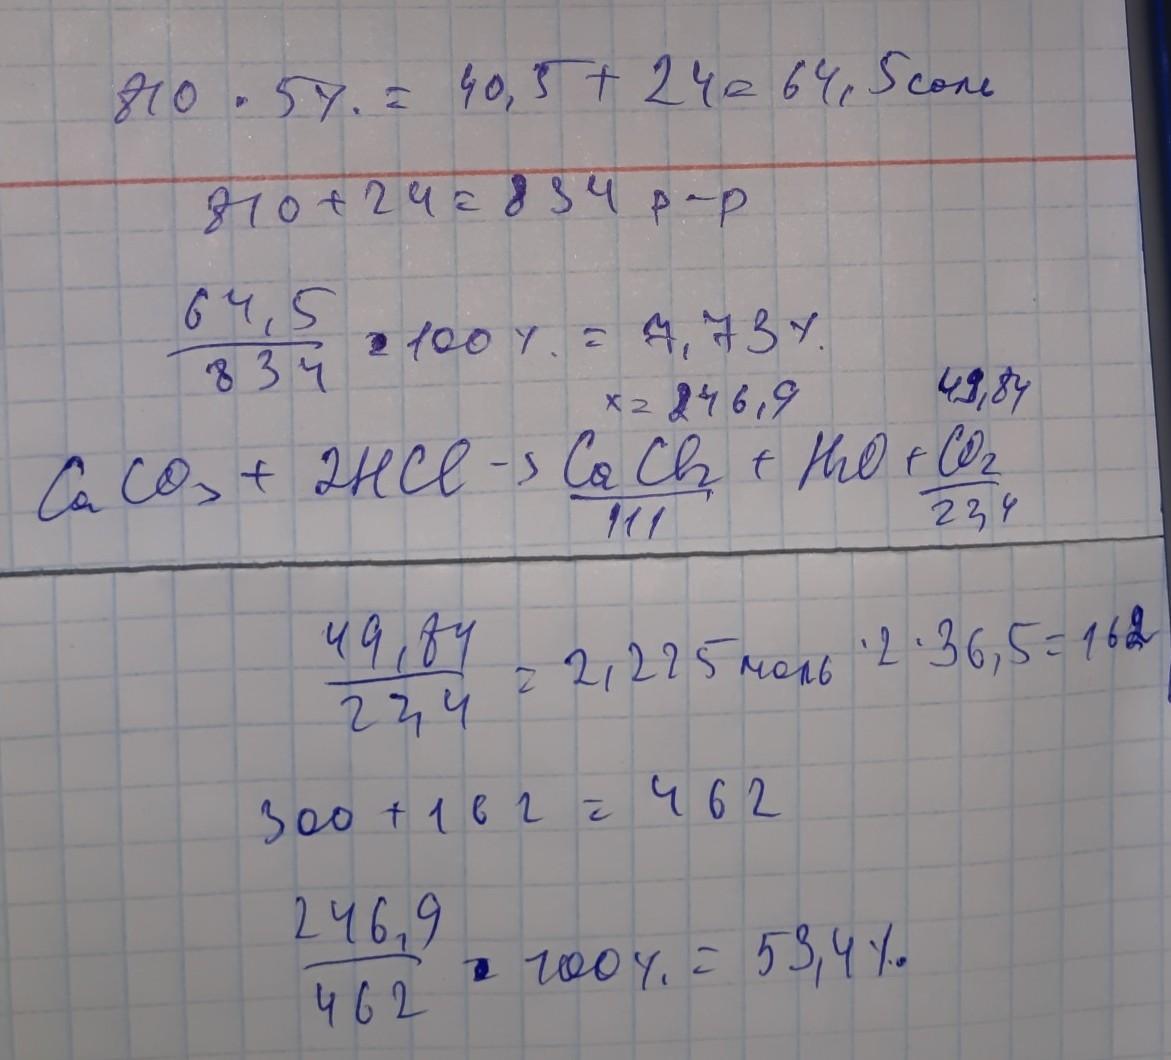 810 · 5% = 40,5 + 24 = 64,5 соль
810 + 24 = 834 р-р
64,5
834
· 100% = 7,73%
x = 246,9 49,84
CaCO3 + 2HCl -> CaCl2 + H2O + CO2
111 22,4
49,84
22,4
= 2,225 моль · 2 · 36,5 = 162
300 + 162 = 462
246,9
462
· 100% = 53,4%